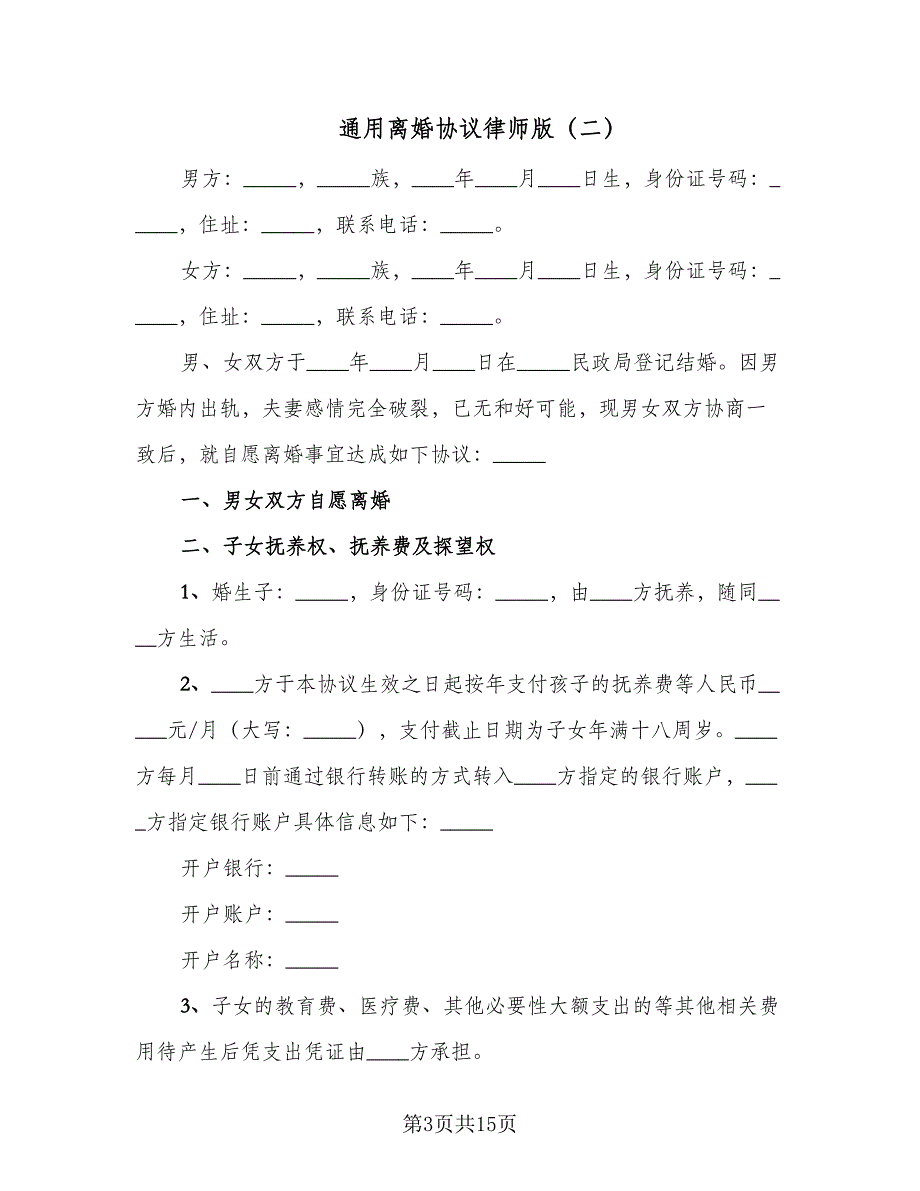 通用离婚协议律师版（二）
男方：_____，_____族，____年____月____日生，身份证号码：_
____，住址：_____，联系电话：_____。
女方：_____，_____族，____年____月____日生，身份证号码：_
____，住址：_____，联系电话：_____。
男、女双方于____年____月____日在_____民政局登记结婚。因男
方婚内出轨，夫妻感情完全破裂，已无和好可能，现男女双方协商一
致后，就自愿离婚事宜达成如下协议：_____
一、男女双方自愿离婚
二、子女抚养权、抚养费及探望权
1、婚生子：_____，身份证号码：_____，由____方抚养，随同__
__方生活。
2、____方于本协议生效之日起按年支付孩子的抚养费等人民币__
___元/月（大写：_____），支付截止日期为子女年满十八周岁。____
方每月____日前通过银行转账的方式转入____方指定的银行账户，___
_方指定银行账户具体信息如下：_____
开户银行：_____
开户账户：_____
开户名称：_____
3、子女的教育费、医疗费、其他必要性大额支出的等其他相关费
用待产生后凭支出凭证由____方承担。
第3页共15页